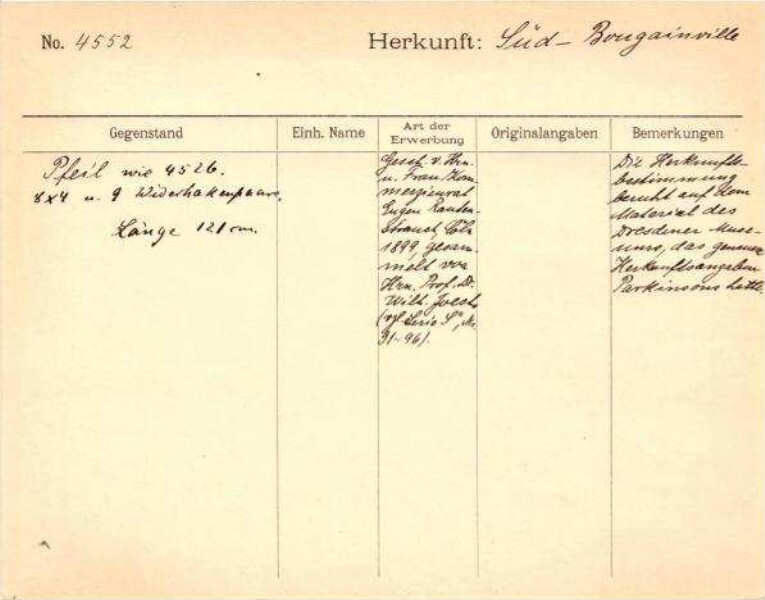 No. 4552
Herkunft: Süd-Bougainville
Gegenstand
Einh. Name
Art der Erwerbung
Originalangaben
Bemerkungen
Pfeil wie 4526.
8x4 u. 9 Widerhakenpaare.
Länge 121 cm.
Gesch. v. Hrn.
u. Frau Kom
merzienrat
Eugen Rauten-
strauch, Cöln
1899, gesam
melt von
Hrn. Prof. Dr.
Wilh. Joest
(vgl. Serie S", No.
31-96).
Die Herkunfts-
bestimmung
beruht auf dem
Material des
Dresdener Muse-
ums, das genaue
Herkunftsangaben
Parkinsons hatte.